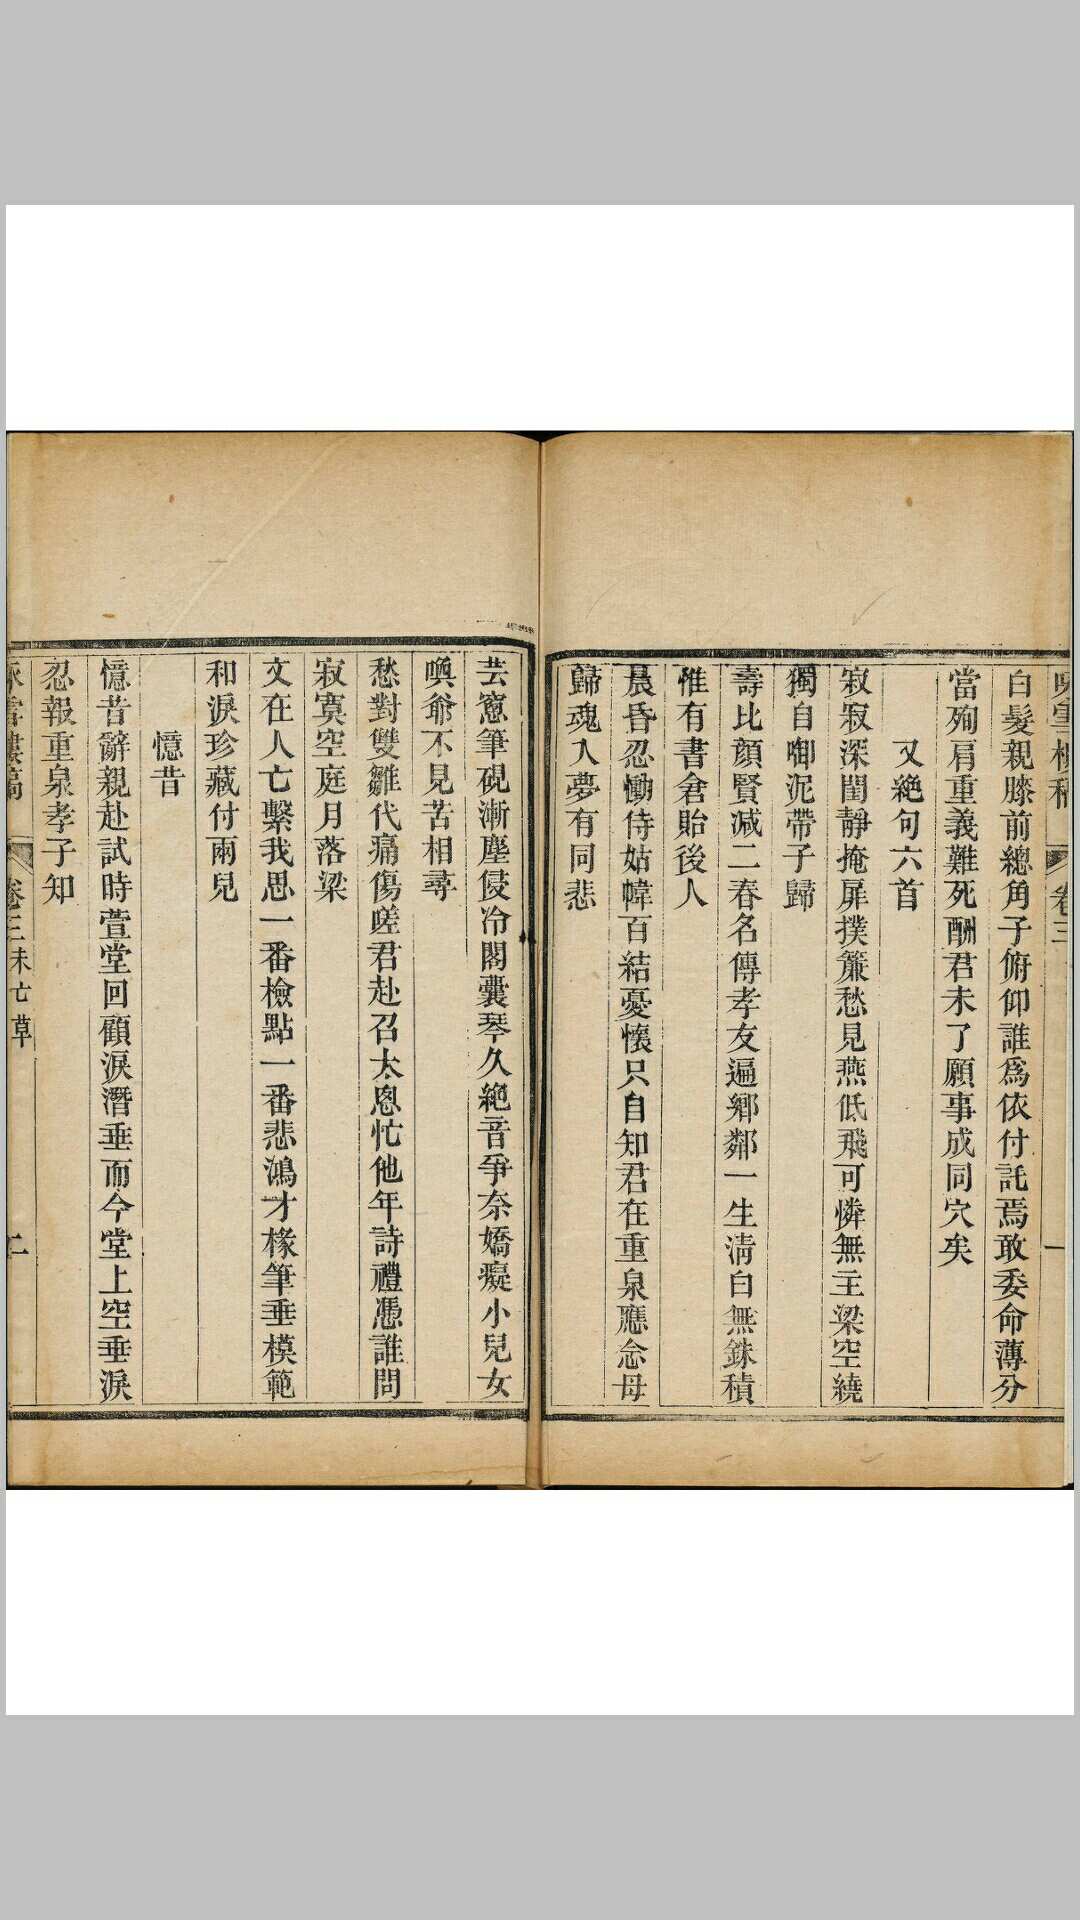 白髮親膝前總角子俯仰誰爲依付託焉敢委命薄分
當殉肩重義難死酬君未了願事成同穴矣
又絶句六首
寂寂深閨靜掩扉撲簾愁見燕低飛可憐無主梁空繞
獨自啣泥帶子歸
壽比顔賢減二春名傳孝友遍鄉鄰一生淸白無銖積
惟有書倉貽後人
晨昏忍慟侍姑幃百結憂懷只自知君在重泉應念母
歸魂入夢有同悲
芸窻筆硯漸塵侵冷閣囊琴久絶音爭奈嬌癡小兒女
喚爺不見苦相尋
愁對雙雛代痛傷嗟君赴召太悤忙他年詩禮憑誰問
寂寞空庭月落梁
文在人亡繫我思一番檢點一番悲鴻才椽筆垂模範
和淚珍藏付兩兒
憶昔
憶昔辭親赴試時萱堂回顧淚潛垂而今堂上空垂淚
忍報重泉孝子知
卷三未亡草 二